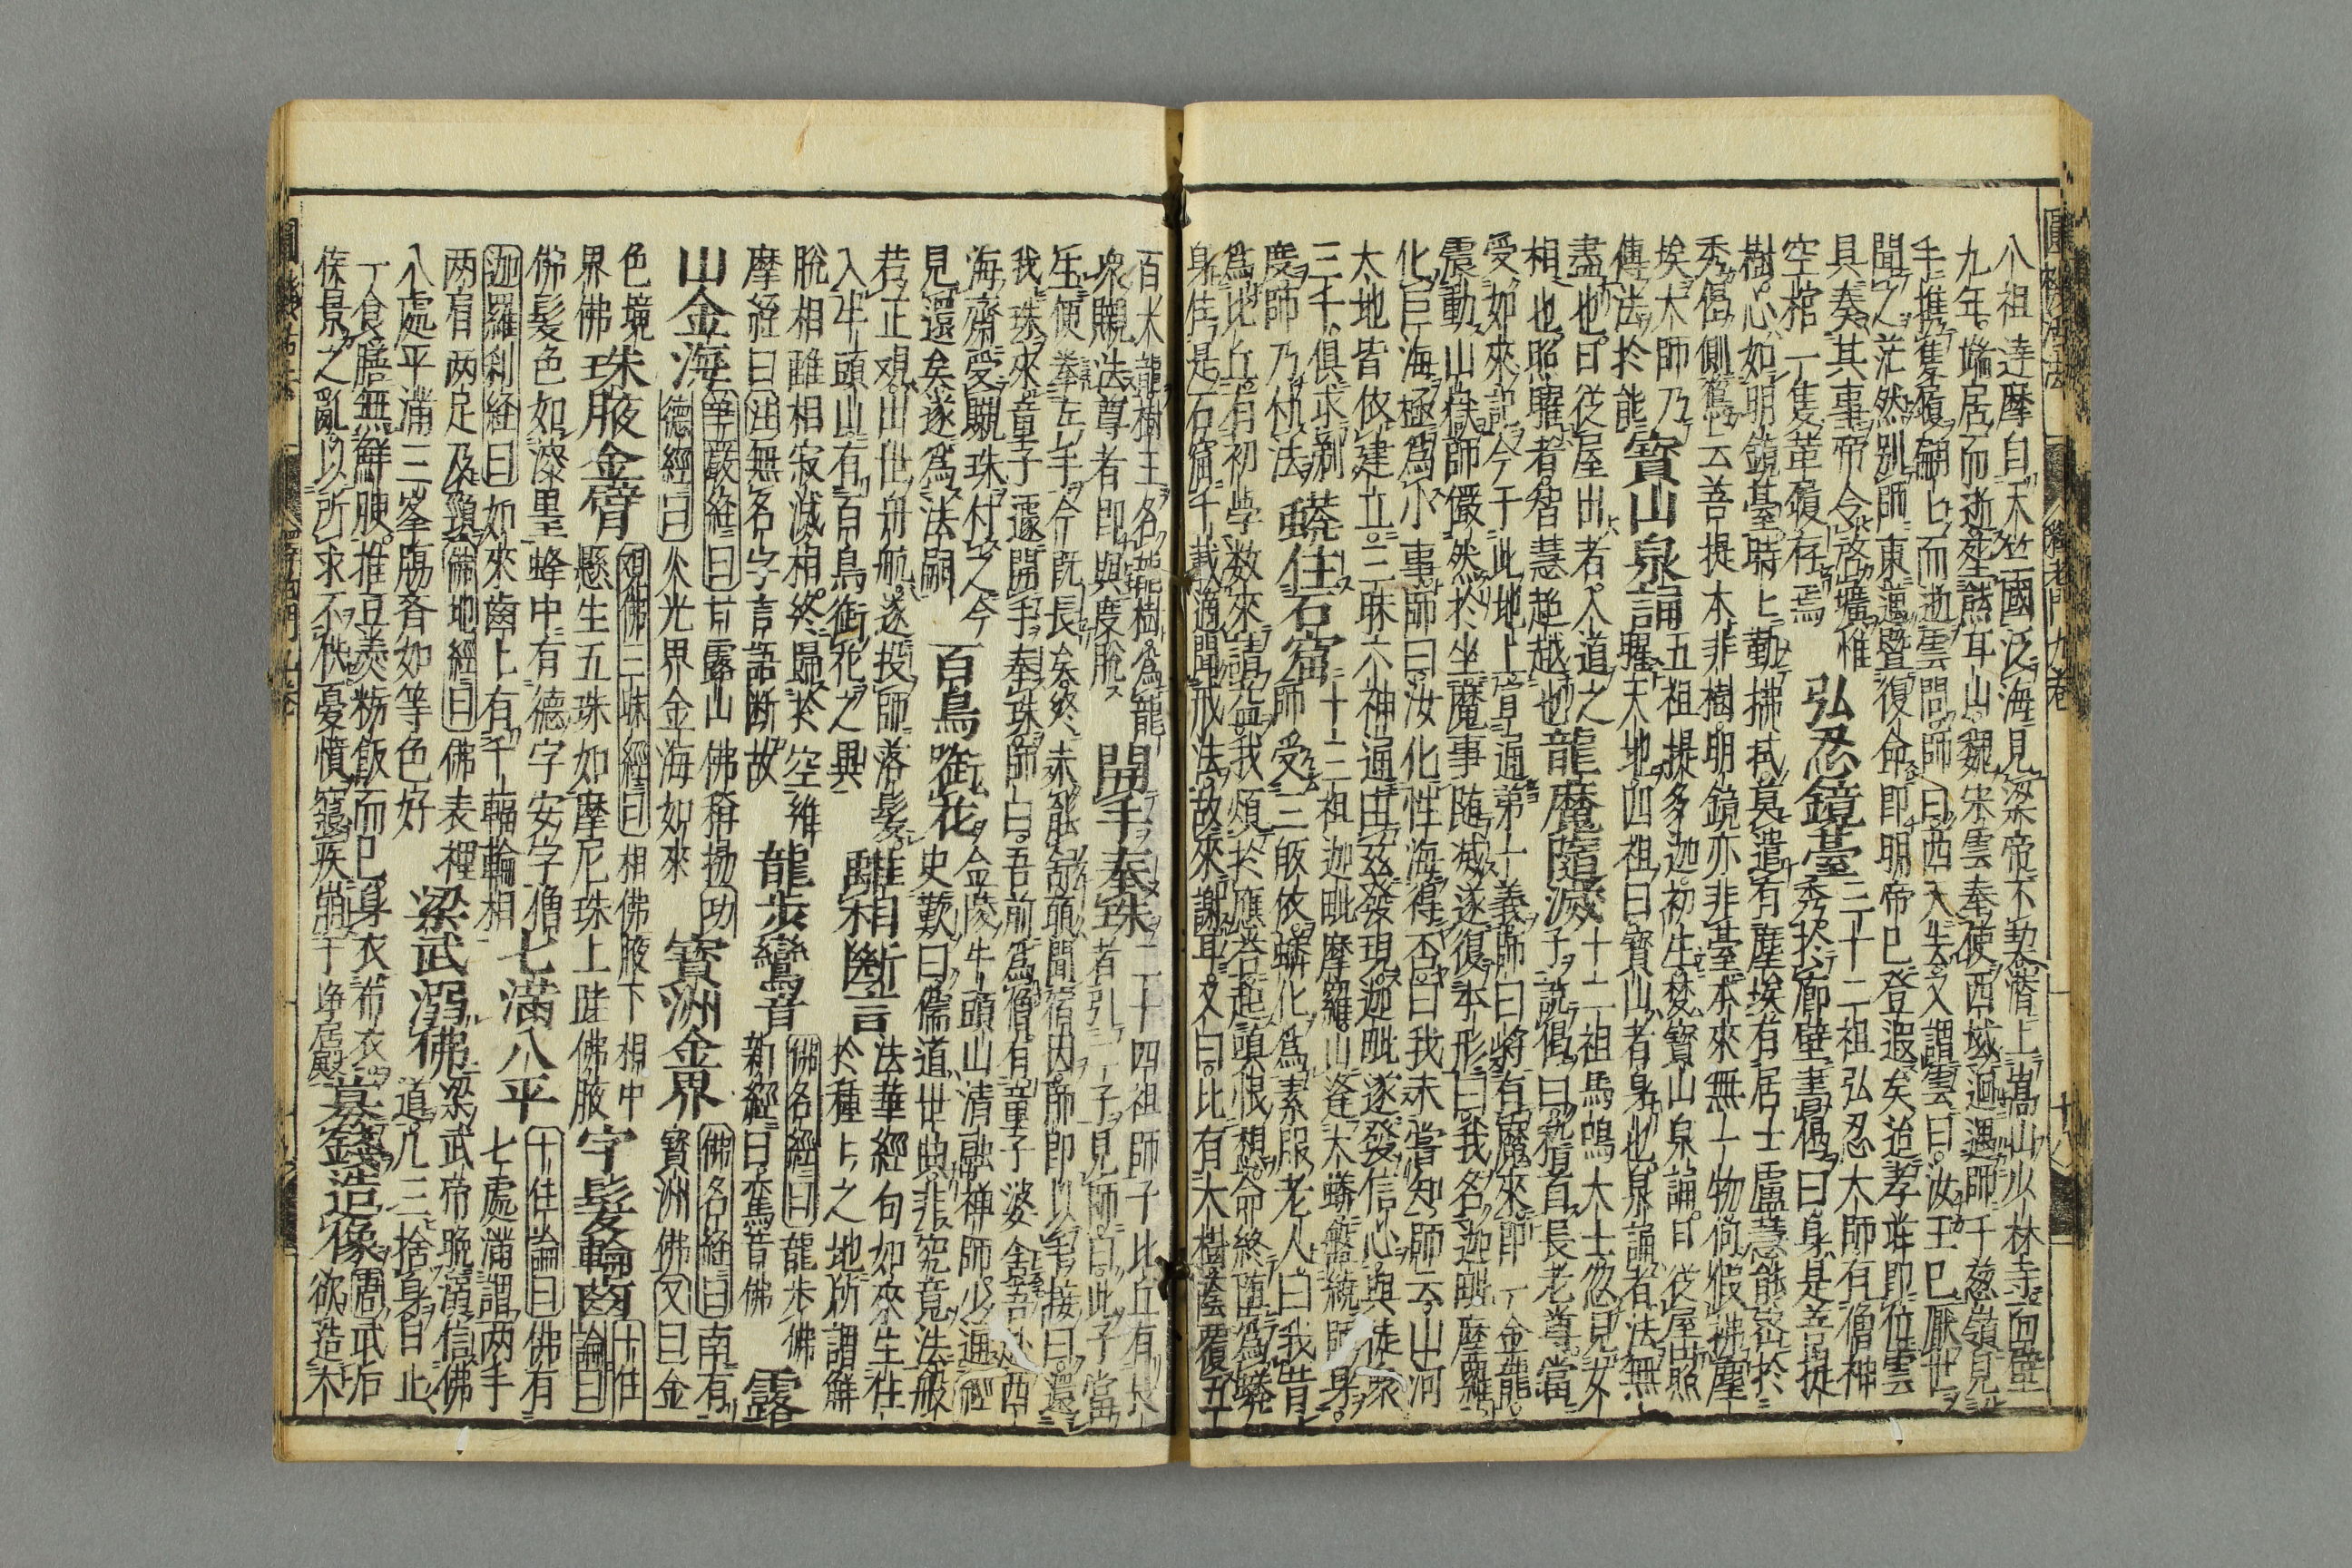 八祖達摩自天竺國泛海見梁帝不契潛上嵩山少林寺面壁
九年端居而逝塟熊耳山魏宋雲奉使西域迴遇師于葱嶺見
手携隻履翩々而逝雲問師曰西天去又謂雲曰汝王已厭世
聞之茫然別師東邁曁復命即明帝已登遐矣迨孝莊即位雲
具奏其事帝令啓壙惟
空棺一隻革履存焉
弘忍鏡臺
三十二祖弘忍大師有僧神
秀於廊壁書偈曰身是菩提
樹心如明鏡臺時々勤拂拭莫遣有塵埃有居士盧慧能密於
秀偈側寫云菩提本非樹明鏡亦非臺本來無一物何假拂塵
埃大師乃
傳法於能
寶山泉誦
五祖提多迦初生梵寶山泉誦曰從屋出照
曜天地四祖曰寶山者身也泉誦者法無
盡也日從屋出者入道之
相也照曜者智慧超越也
龍魔隨滅
十二祖馬鳴大士忽見女
子說偈曰稽首長老尊當
受如來記今于此地上宣通第一義師曰將有魔來即一金龍
震動山獄師儼然於坐魔事随滅遂復本形曰我名迦毗摩羅
化巨海極爲小事師曰汝化性海得否曰我未嘗知師云山河
大地皆依建立三昧六神通由茲發現迦毗遂發信心與徒衆
三千俱求剃
度師乃付法
蟒住石窟
十三祖迦毗摩羅山逢大蟒盤繞師身
師受三皈依蟒化爲素服老人曰我昔
爲比丘有初學数來請益我煩於應答起嗔恨想命終墮爲蟒
身住是石窟千載適聞戒法故來謝耳又曰此有大樹蔭覆五
百大龍樹王名龍樹爲龍
衆說法尊者即與度脫
開手奉珠
二十四祖師子比丘有長
者引一子見師曰此子當
生便拳左手今既長矣終未能舒願聞宿因師即以手接曰還
我珠來童子遽開手奉珠師曰吾前爲僧有童子婆舍吾赴西
海齋受䞋珠付之今
見還矣遂爲法嗣
百鳥啣花
金陵牛頭山清融禅師少通經
史歎曰儒道世典非究竟法般
若正观出世舟航遂投師落髮
入牛頭山有百鳥啣花之異
離相斷言
法華經句如來生住
於種々之地所謂解
脫相離相寂滅相終歸於空維
摩經曰法無名字言語断故
龍步鸞音
佛名經曰龍步佛
新經曰鸞音佛
露
山金海
華嚴經曰甘露山佛稱揚功
德經曰火光界金海如來
寶洲金界
佛名經曰南有
寶洲佛又曰金
色境
界佛
珠腋金臂
观佛三昧經曰相佛腋下相中
懸生五珠如摩尼珠上跬佛腋
字髮輪齒
十住
論曰
佛髮色如漆黒蜂中有德字安字僧
迦羅刹経曰如來齒上有千輻輪相
七滿八平
十住論曰佛有
七處滿謂兩手
兩肩兩足及頸佛地經曰佛表裡
八處平滿三峯膓脊如等色好
梁武溺佛
梁武帝晚溺信佛
道凡三捨身日止
一食膳無鮮腴推豆羹粝飯而已身衣布衣
侯景之亂以所求不供憂憤寢疾崩于淨居殿
募錢造像
周武后
欲造大